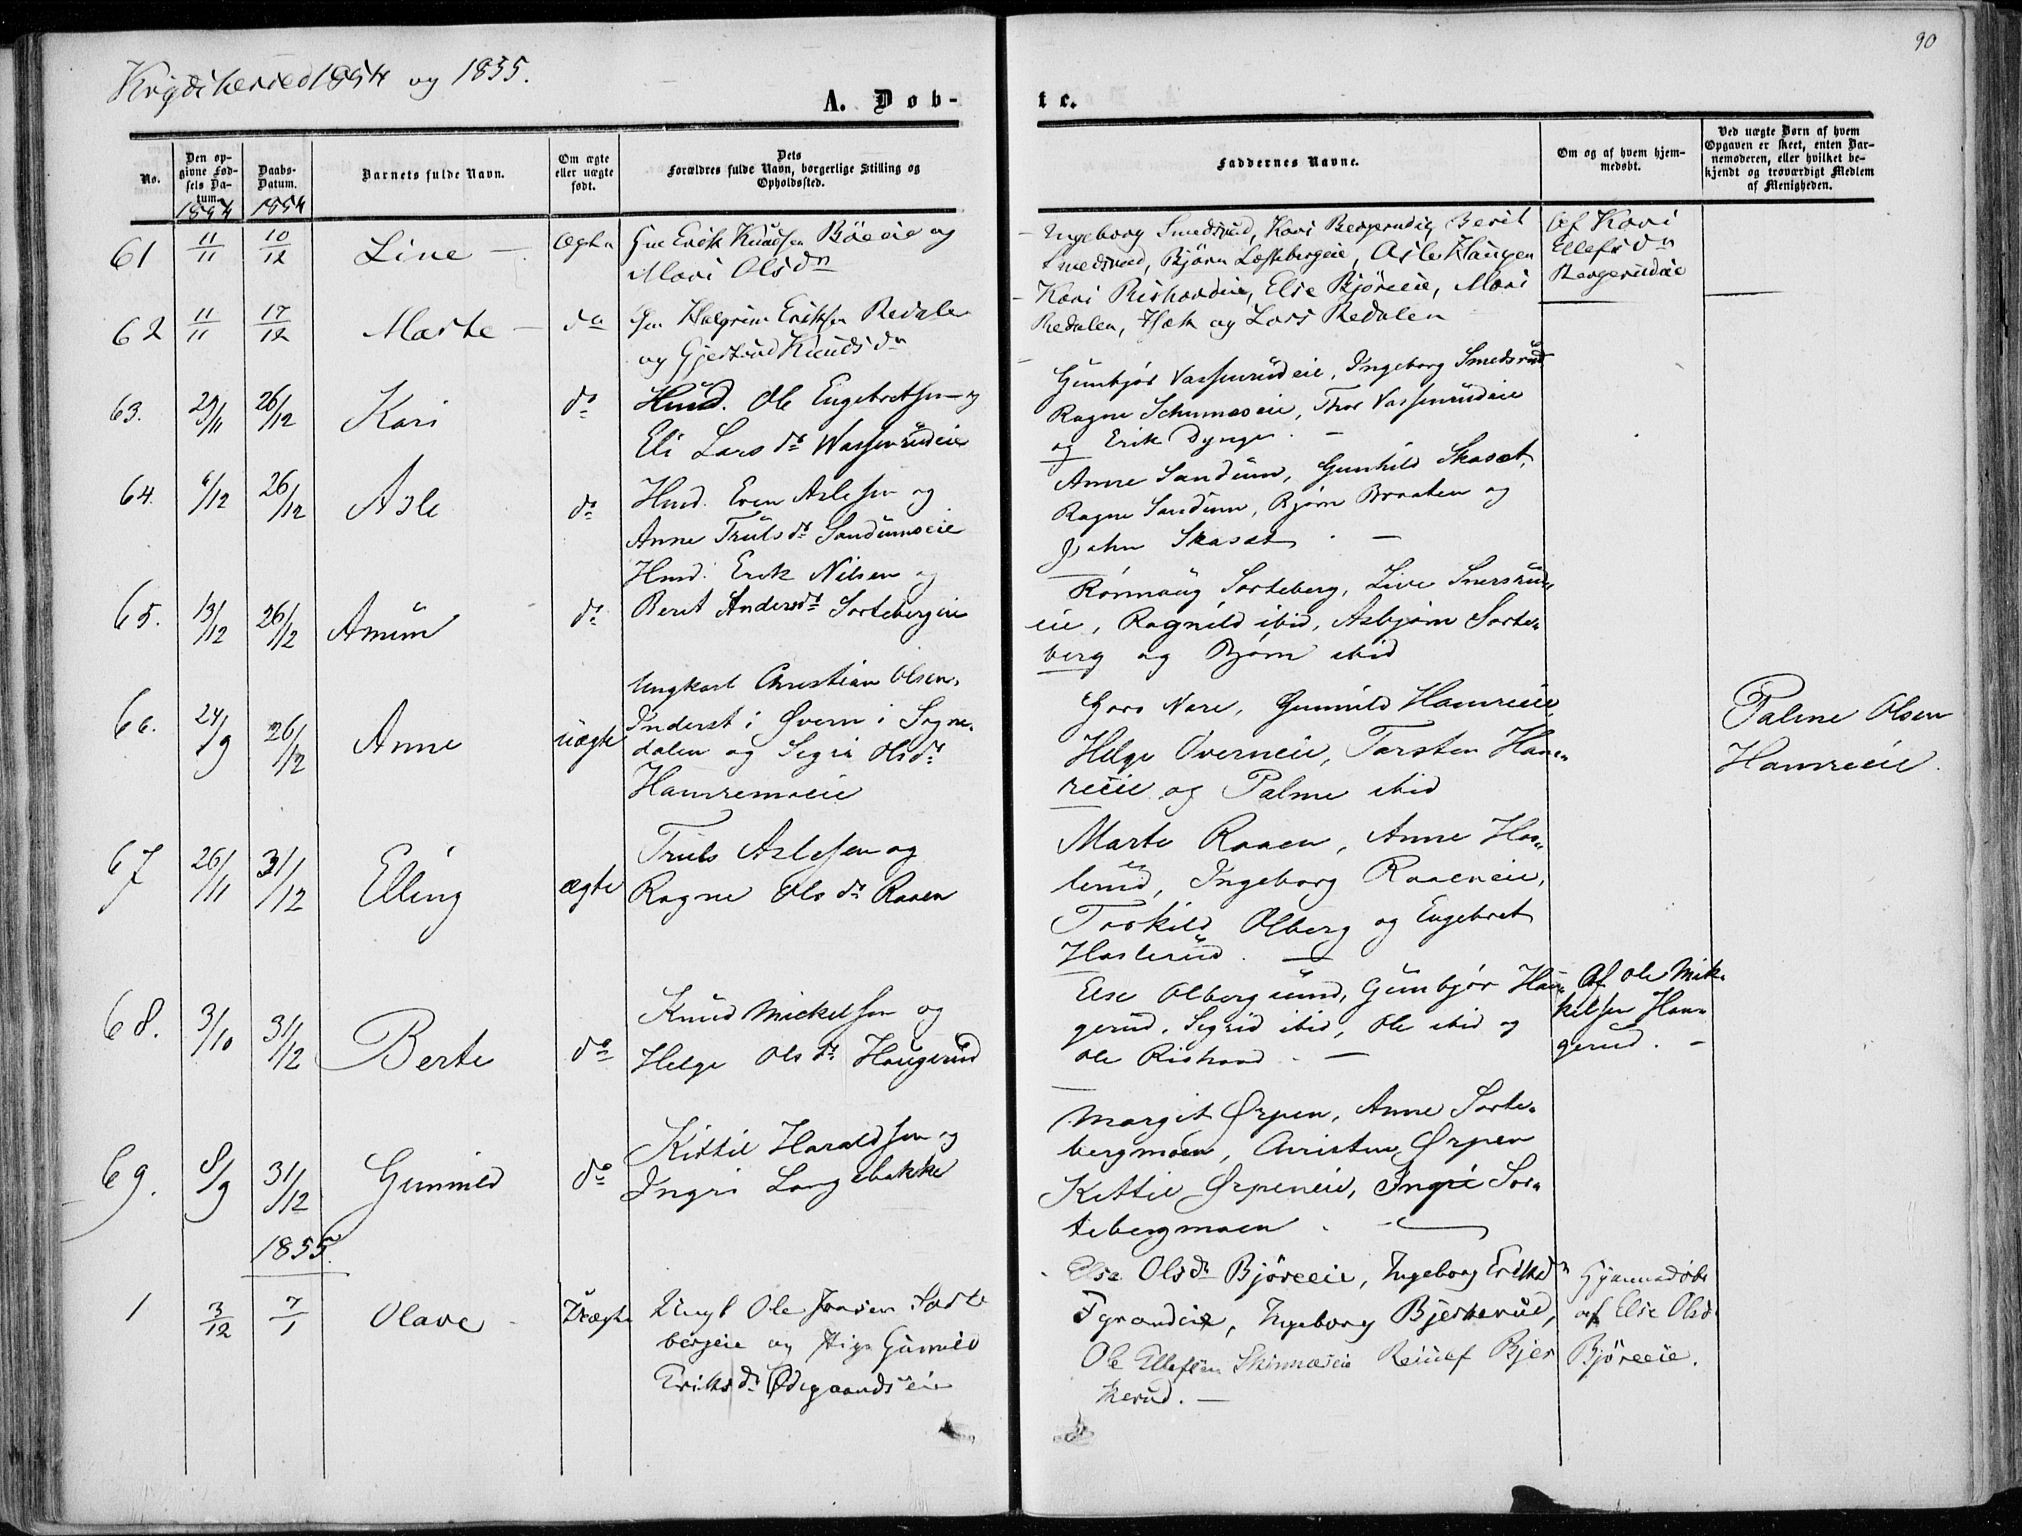 90
Krydsherred 1854 og 1855.
A. Døb-
te.
No.
Den op-
givne Fød-
sels Da-
tum.
1854
Daabs-
Datum.
1854
Barnets fulde Navn.
Om ægte
eller uægte
født.
Dets
Forældres fulde Navn, borgerlige Stilling og
Opholdssted.
Faddernes Navne.
Om og af hvem hjem-
medøbt.
Ved uægte Børn af hvem
Opgaven er skeet, enten Bar-
nemoderen, eller hvilket be-
kjendt og troværdigt Medlem
af Menigheden.
61 11/11 10/12 Line - Ægte
Erik Knudsen Böeeie og
Mari Olsdr
Ingeborg Smedsrud, Kari Bergerudeie, Berit
Smedsrud, Bjørn Leskebergeie, Asle Haugen
Af Kari
Ellefsdr
Bergerudeie
62 11/11 17/12 Marte - do
Halgrim Eriksen Redale
og Gjertrud Knudsdr
Kari Rishovdeie, Else Björeeie, Mari
Redalen, og Lars Redalen
63. 29/11 26/12 Kari do
Husmd. Ole Engebretsen og
Eli Larsdr Wassenrudeie
Gunbjør Vassenrudeie, Ingeborg Smedsrud
Ragne Skinnæseie, Thor Vassenrudeie
og Erik Dynge. -
64. 6/12 26/12 Asle do
Husmd. Even Aslesen og
Anne Trulsdr Sandumseie
Anne Sandum, Gunhild Skaset,
Ragne Sandum, Bjørn Braaten og
John Skaset. -
65. 13/12 26/12 Amun do
Husmd. Erik Nilsen og
Berit Andersdr Sortebergeie
Rönnaug Sorteberg, Live Snersrud-
eie, Ragnild ibid, Asbjørn Sorte-
berg og Bjørn ibid
66. 24/9 26/12 Anne uægte
Ungkarl Christian Olsen,
Inderst i Øvern i Sogne-
dalen og Segri Olsdr
Hamremoeie
Goro Nare, Gunnild Hamreeie,
Helge Overneie, Torsten Ham-
reeie og Palme ibid
Palme Olsen
Hamreeie.
67 26/11 31/12 Elling ægte
Truls Aslesen og
Ragne Olsdr Raaen
Marte Raaen, Anne Has-
lerud, Ingeborg Raaeneie,
Torkild Olberg og Engebret
Haslerud. -
68. 3/10 31/12 Berte do
Knud Mickelsen og
Helge Olsdr Haugerud
Else Olberg, Gunbjør Hau-
gerud, Segrid ibid, Ole ibid og
Ole Rishovd. -
Af Ole Mik-
kelsen Hau-
gerud. -
69. 8/9 31/12 Gunnild do
Kittil Haraldsen og
Ingri Langebakke
Margit Ørpen, Anne Sorte-
bergmoen, Christen Ørpen
Kittil Ørpeneie, Ingri Sor-
tebergmoen. -
1855.
1 3/12 7/1 Olave - Uægte
Ungk Ole Jonsen Sorte
bergeie og Pige Gunnild
Eriksdr Ødegaardseie
Else Olsdr Björeeie, Ingeborg Eriksdr
Fyrandeie, Ingeborg Bjerkerud,
Ole Ellefsen Skinnæseie Bjer
kerud. -
Hjemmedøbt
af Else Olsdr
Björeeie.